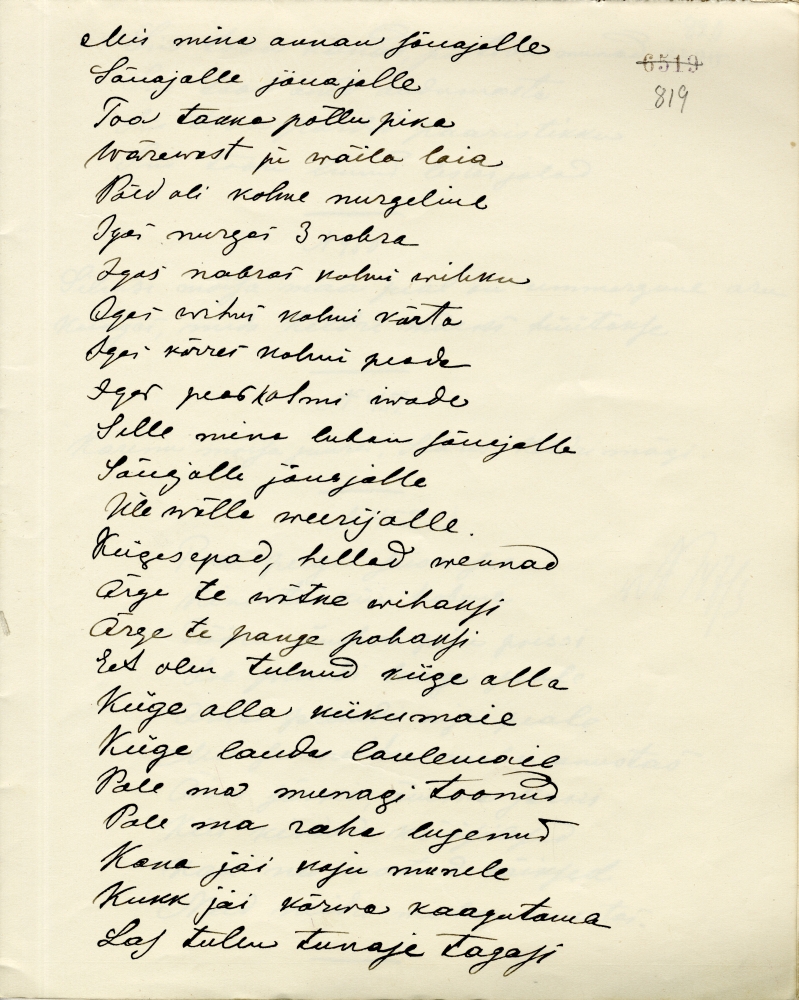 Mis mina annan sõuajalle
Sõuajalle jõuajalle
Toa takka põllu pika
Wärawast jo wäila laia
Põld oli kolme nurgeline
Igas nurgas 3 nabra
Igas nabras kolmi wihku
Igas wihus kolmi kõrta
Igas kõrres kolmi peada
Igas peas kolmi iwada
Selle mina luban sõuajalle
Sõuajalle jõuajalle
Üle wälla weerijalle.
Kiigesepad, hellad wennad
Ärge te wõtke wihaksi
Ärge te pange pahaksi
Et olen tulnud kiige alla
Kiige alla kiikumaie
Kiige lauda laulemaie
Pole ma munagi toonud
Pole ma raha lugenud
Kana jäi koju munele
Kukk jäi kõrwa kaagutama
Las tulen tunaje tagasi
6519
819